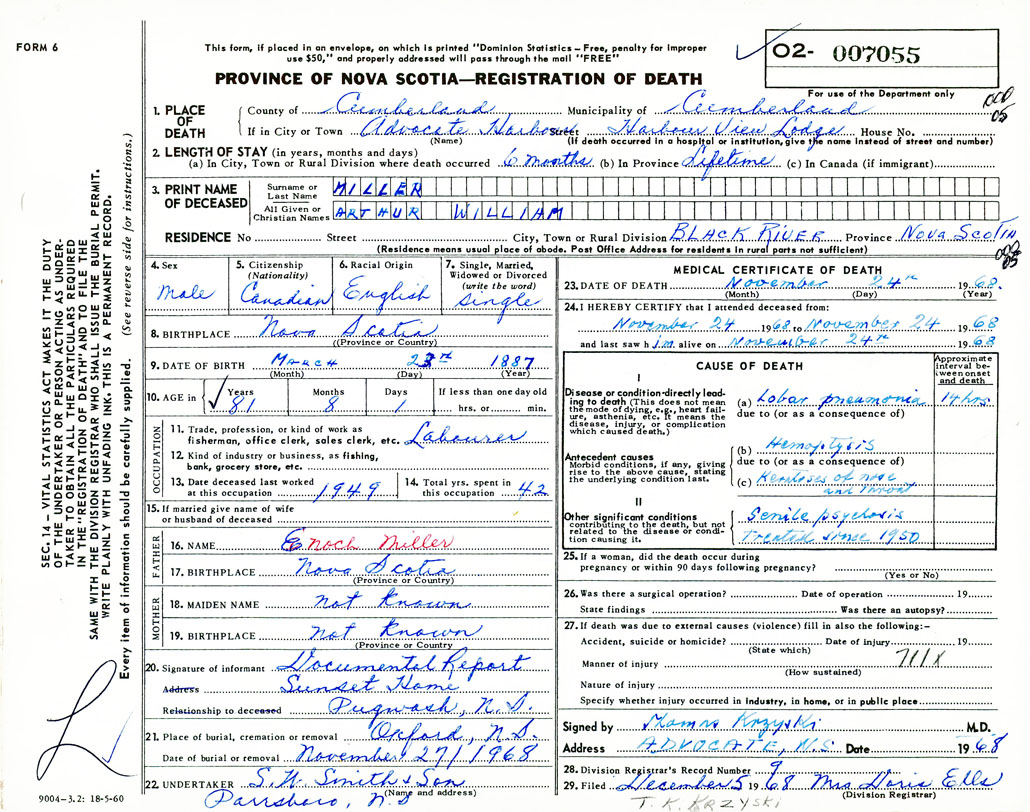 FORM 6
This form, if placed in an envelope, on which is printed "Dominion Statistics – Free, penalty for improper
use $50," and properly addressed will pass through the mail "FREE"
O2- 007055
For use of the Department only
PROVINCE OF NOVA SCOTIA—REGISTRATION OF DEATH
1. PLACE OF DEATH County of Cumberland Municipality of Cumberland
If in City or Town Advocate Harbour Street Harbour View Lodge House No.
(Name) (If death occurred in a hospital or institution, give the name instead of street and number)
2. LENGTH OF STAY (in years, months and days)
(a) In City, Town or Rural Division where death occurred 6 months (b) In Province Lifetime (c) In Canada (if immigrant)
3. PRINT NAME OF DECEASED Surname or Last Name MILLER
All Given or Christian Names ARTHUR WILLIAM
RESIDENCE No Street City, Town or Rural Division BLACK RIVER Province NOVA SCOTIA
(Residence means usual place of abode. Post Office Address for residents in rural parts not sufficient)
4. Sex Male
5. Citizenship (Nationality) Canadian
6. Racial Origin English
7. Single, Married, Widowed or Divorced (write the word) Single
8. BIRTHPLACE Nova Scotia
(Province or Country)
9. DATE OF BIRTH March 23rd 1887
(Month) (Day) (Year)
10. AGE in Years 81 Months 8 Days 1 If less than one day old hrs. or min.
OCCUPATION
11. Trade, profession, or kind of work as
fisherman, office clerk, sales clerk, etc. Labourer
12. Kind of industry or business, as fishing,
bank, grocery store, etc.
13. Date deceased last worked at this occupation 1949
14. Total yrs. spent in this occupation 42
15. If married give name of wife
or husband of deceased
FATHER
16. NAME Enoch Miller
17. BIRTHPLACE Nova Scotia
(Province or Country)
MOTHER
18. MAIDEN NAME Not Known
19. BIRTHPLACE Not Known
(Province or Country)
20. Signature of informant Documental Report
Address Sunset Home
Relationship to deceased Pugwash, N.S.
21. Place of burial, cremation or removal Oxford, N.S.
Date of burial or removal November 27/1968
22. UNDERTAKER S.W. Smith & Son
(Name and address)
Parrsboro, N.S
MEDICAL CERTIFICATE OF DEATH
23. DATE OF DEATH November 24th 1968.
(Month) (Day) (Year)
24. I HEREBY CERTIFY that I attended deceased from:
November 24 1968 to November 24 1968
and last saw him alive on November 24th 1968
CAUSE OF DEATH
Approximate interval between onset and death
I
Disease or condition-directly leading to death (This does not mean the mode of dying, e.g., heart failure, asthenia, etc. It means the disease, injury, or complication which caused death.)
(a) Lobar pneumonia 14 hrs.
due to (or as a consequence of)
Antecedent causes
Morbid conditions, if any, giving rise to the above cause, stating the underlying condition last.
(b) Hemoptysis
due to (or as a consequence of)
(c) Keratoses of nose
and throat
II
Other significant conditions
contributing to the death, but not related to the disease or condition causing it.
Senile psychosis
Treated since 1950
25. If a woman, did the death occur during
pregnancy or within 90 days following pregnancy?
(Yes or No)
26. Was there a surgical operation? Date of operation 19
State findings Was there an autopsy?
27. If death was due to external causes (violence) fill in also the following:–
Accident, suicide or homicide? Date of injury 19
(State which)
Manner of injury 711X
(How sustained)
Nature of injury
Specify whether injury occurred in industry, in home, or in public place
Signed by Thomas Krzyski M.D.
Address ADVOCATE, N.S. Date 1968
28. Division Registrar's Record Number 9
29. Filed December 5 1968 Mrs Doris Ells
(Division Registrar)
T. K. KRZYSKI
SEC. 14 – VITAL STATISTICS ACT MAKES IT THE DUTY
OF THE UNDERTAKER OR PERSON ACTING AS UNDER-
TAKER TO OBTAIN ALL THE PARTICULARS REQUIRED
IN THE "REGISTRATION OF DEATH" AND TO FILE THE
SAME WITH THE DIVISION REGISTRAR WHO SHALL ISSUE THE BURIAL PERMIT.
WRITE PLAINLY WITH UNFADING INK. THIS IS A PERMANENT RECORD.
Every item of information should be carefully supplied. (See reverse side for instructions.)
9004–3.2: 18-5-60